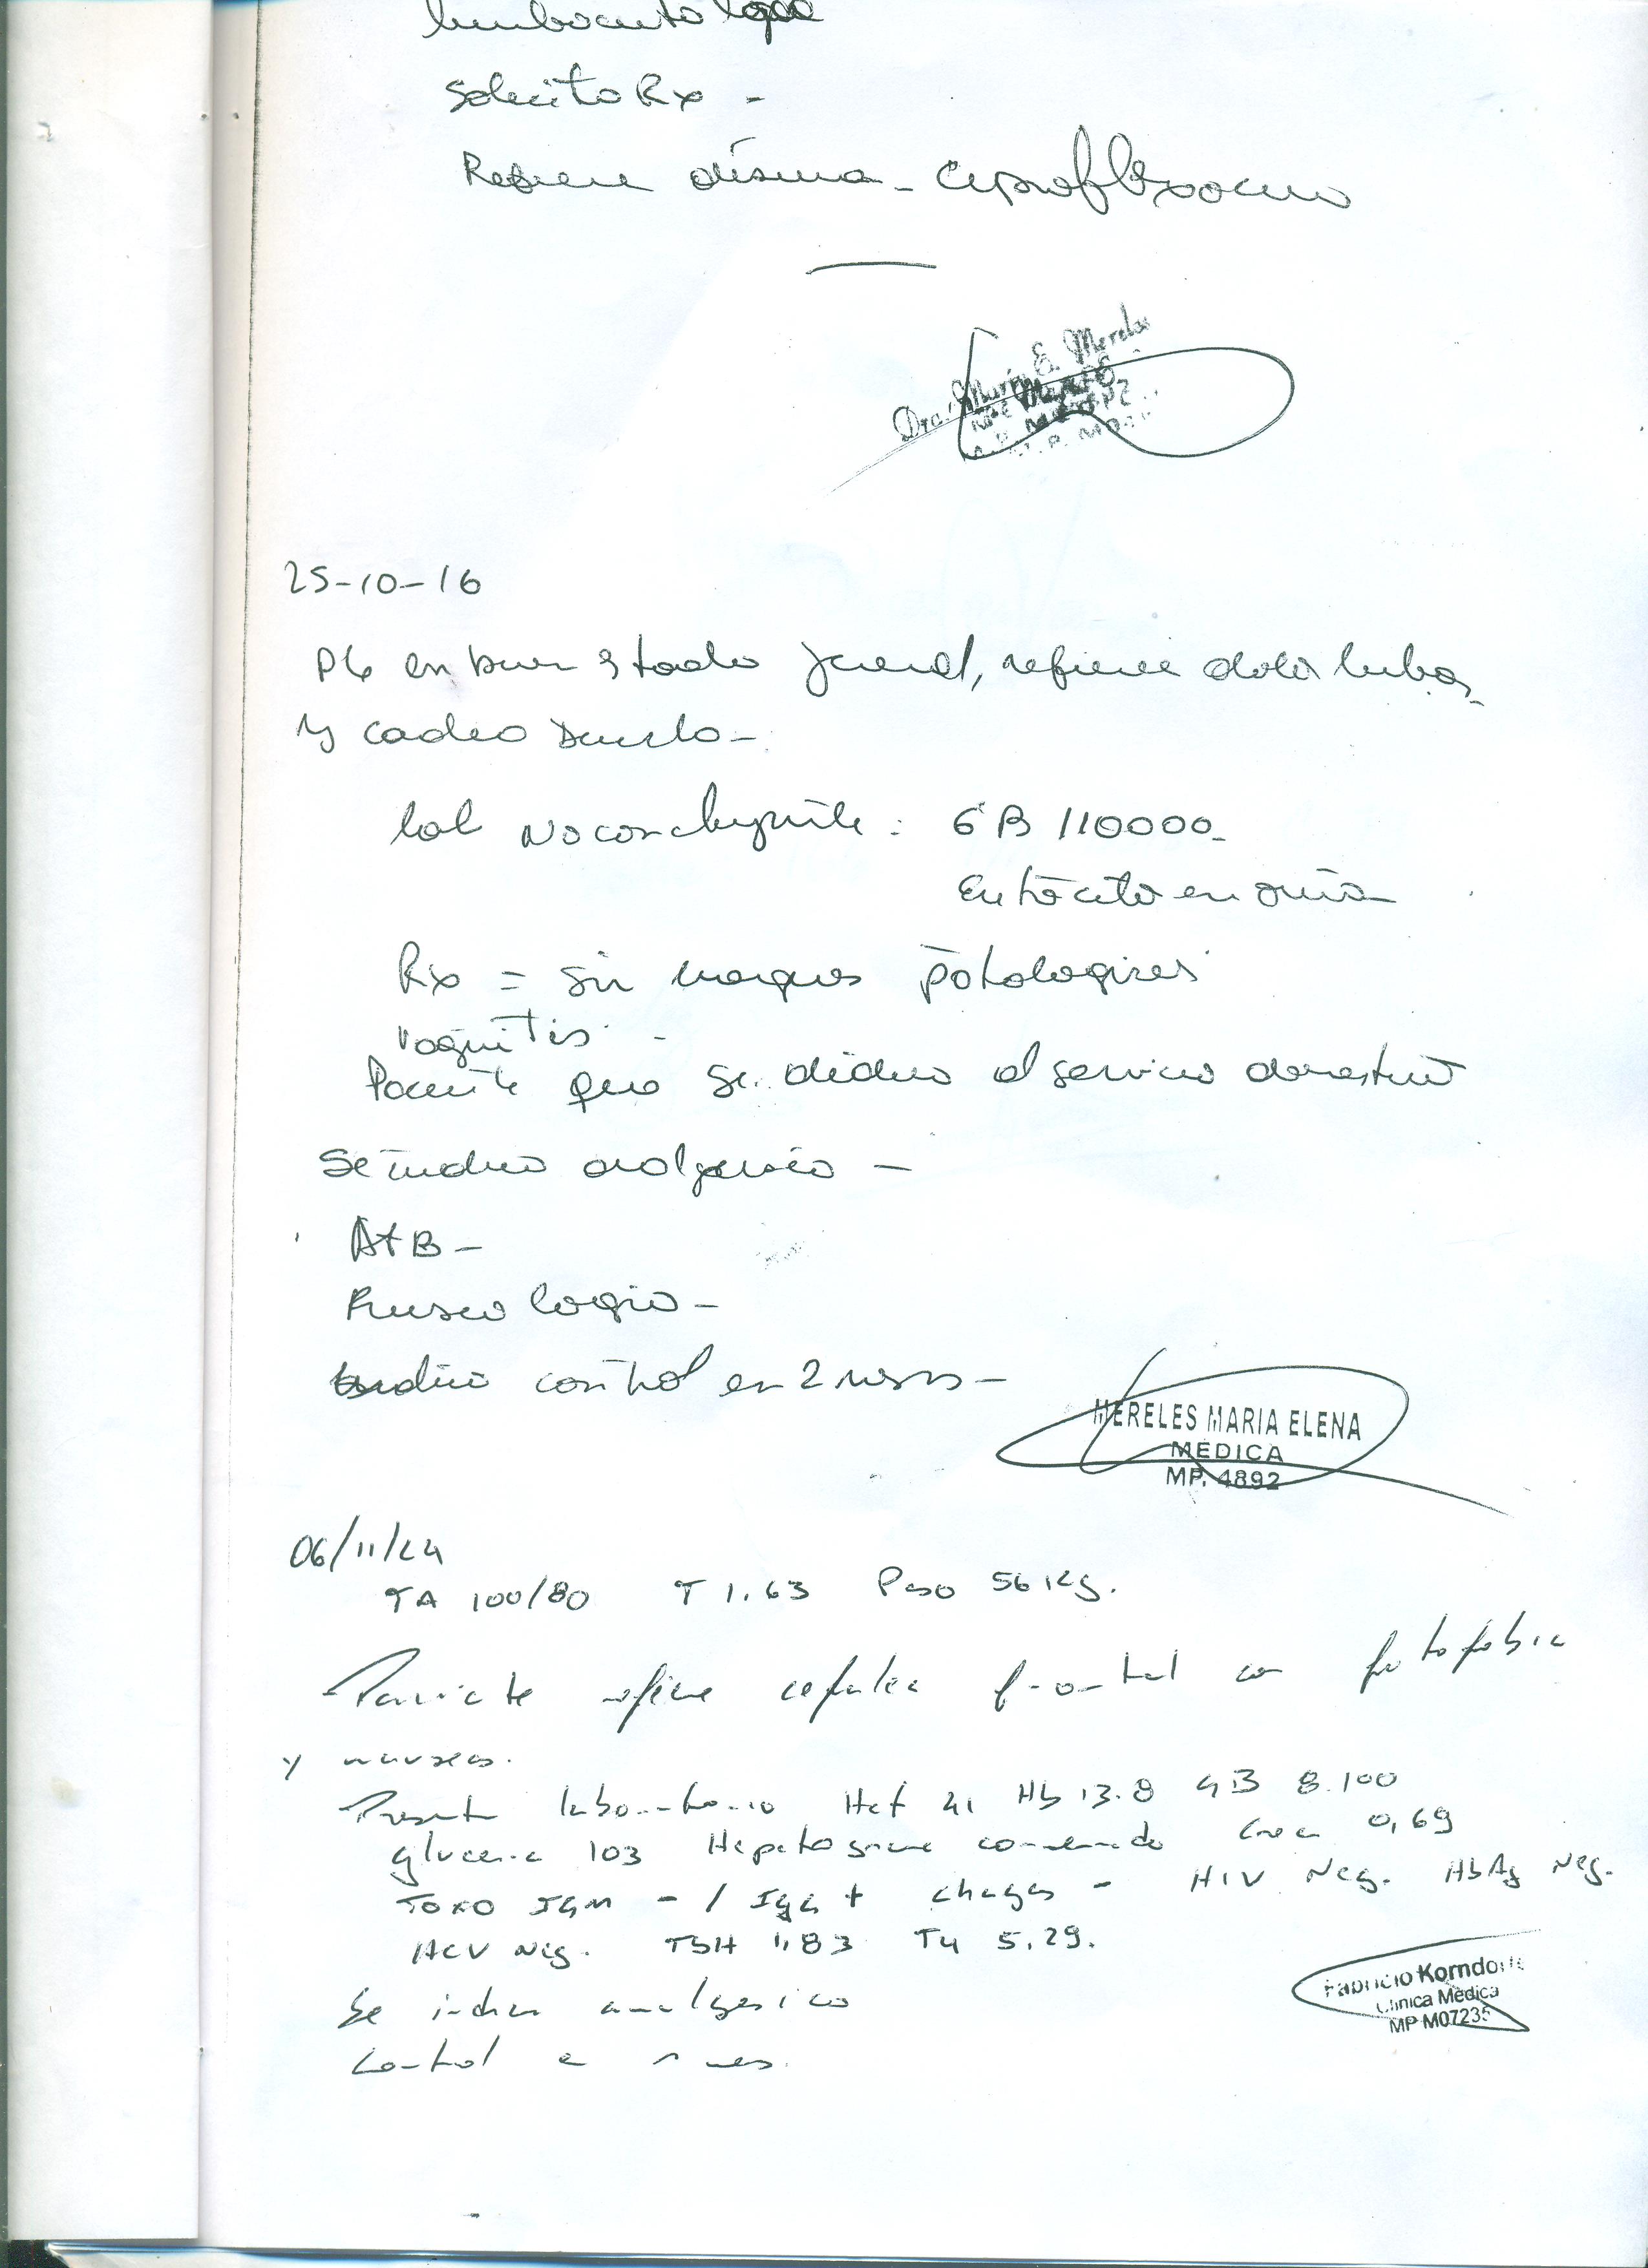 Solicito Rx -
Refiere disuria - Ciprofloxocino
Dra. María E. Mereles
25-10-16
Pte en buen estado general, refiere dolor lumbar
y cadera
lab no concluyente : GB 110000
en orina
Rx = sin patologicos
Paciente que se dedica al servicio domestico
Se indica analgesico -
ATB -
Kinesiologia -
control en 2 meses -
MERELES MARIA ELENA
MEDICA
MP. 4892
06/11/24
TA 100/80 T 1.63 Peso 56 Kg.
- Paciente refiere cefalea frontal con fotofobia
y nauseas.
Presenta laboratorio Hct 41 Hb 13.8 GB 8.100
glucemia 103 Hepatograma conservado Crea 0,69
TOXO IGM - / IgG + chagas - HIV Neg. HbAg Neg.
HCV Neg. TSH 1.83 T4 5.29.
Se indica analgesico
Control en 1 mes.
Fabricio Korndorf
Clinica Médica
MP M07235